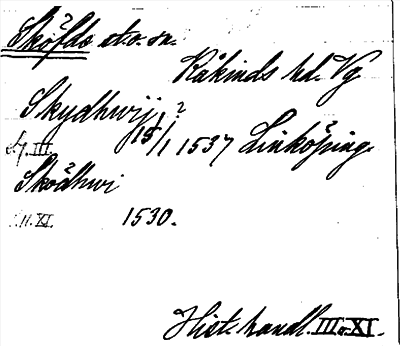 Sköfde st. o. sn.
Kåkinds hd. Vg
Skydhwij ?
15/1 1537 Linköping.
III.
Sködhwi
11. XI. 1530.
Hist. handl. III o. XI.